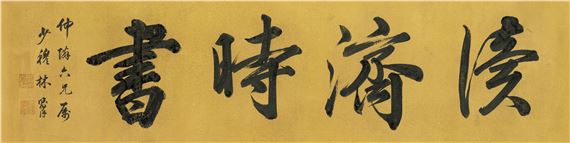 讀濟時書
仲六兄屬
少穆林則徐